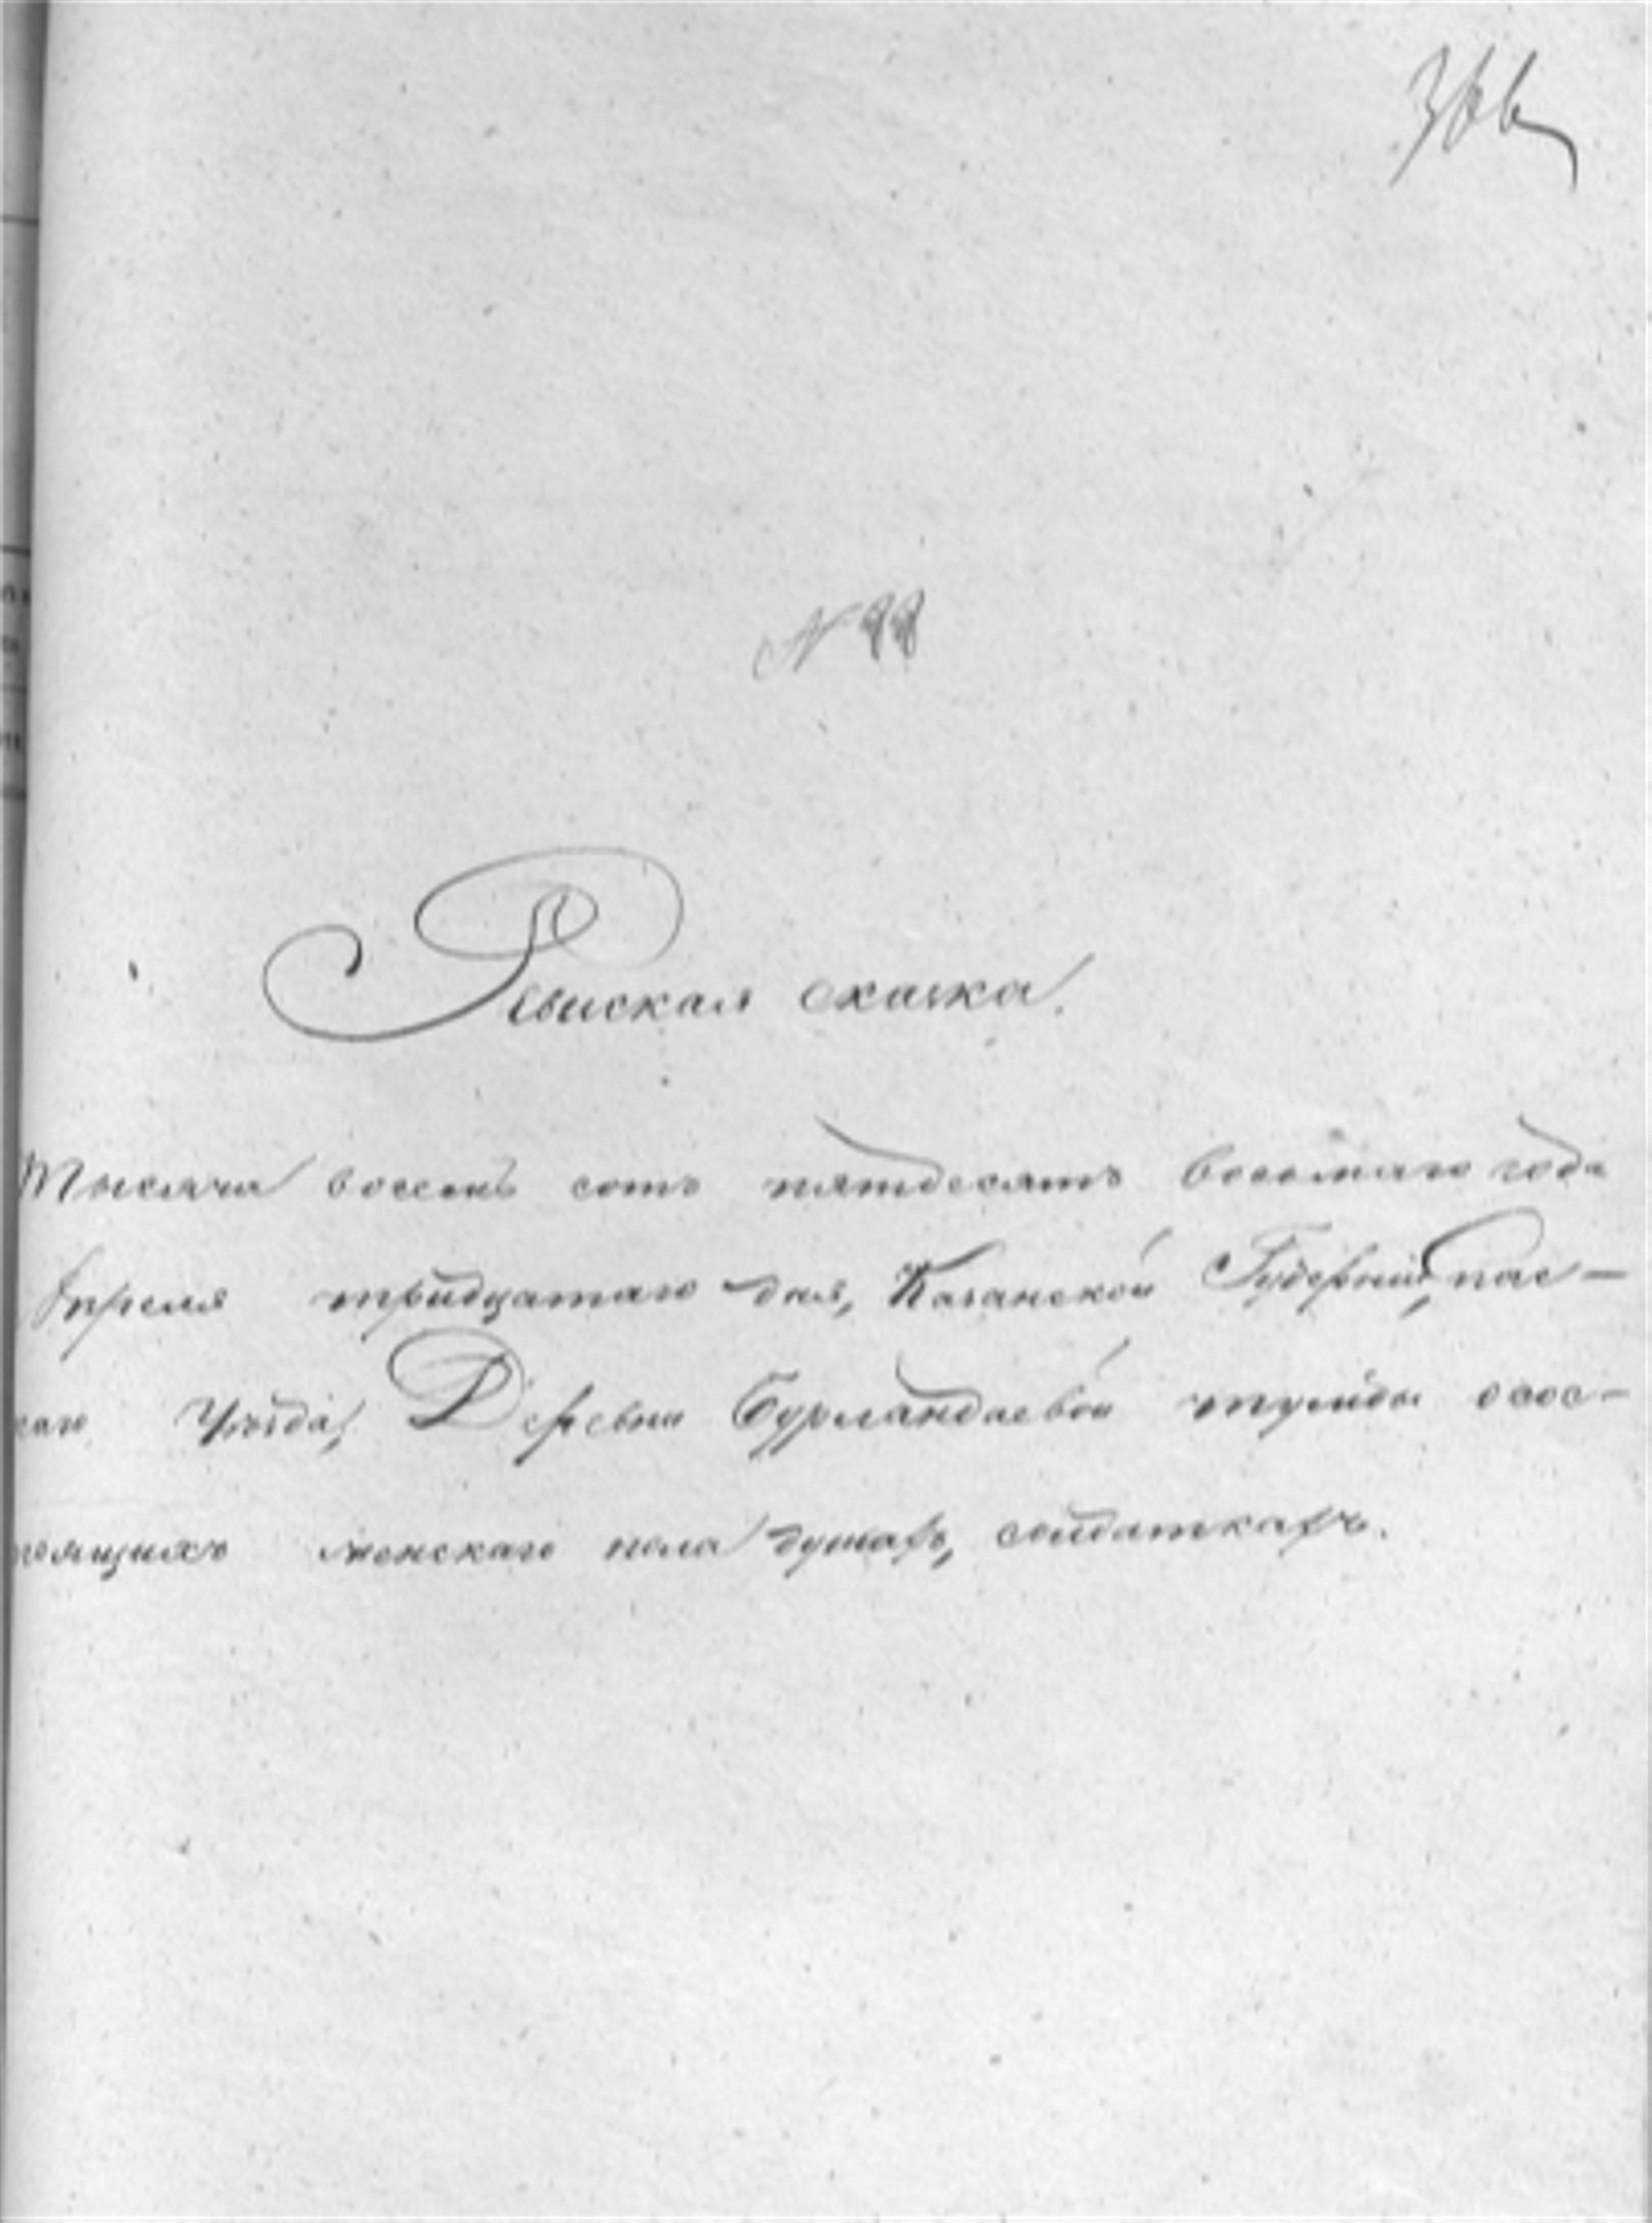 Ревиская сказка.
Тысяча восемь сотъ пятдесятъ восьмаго года
Апреля тридцатаго дня, Казанской Губерніи, спас-
каго Уѣзда, Деревни Бурландаевой
женскаго пола душахъ, солдаткахъ.